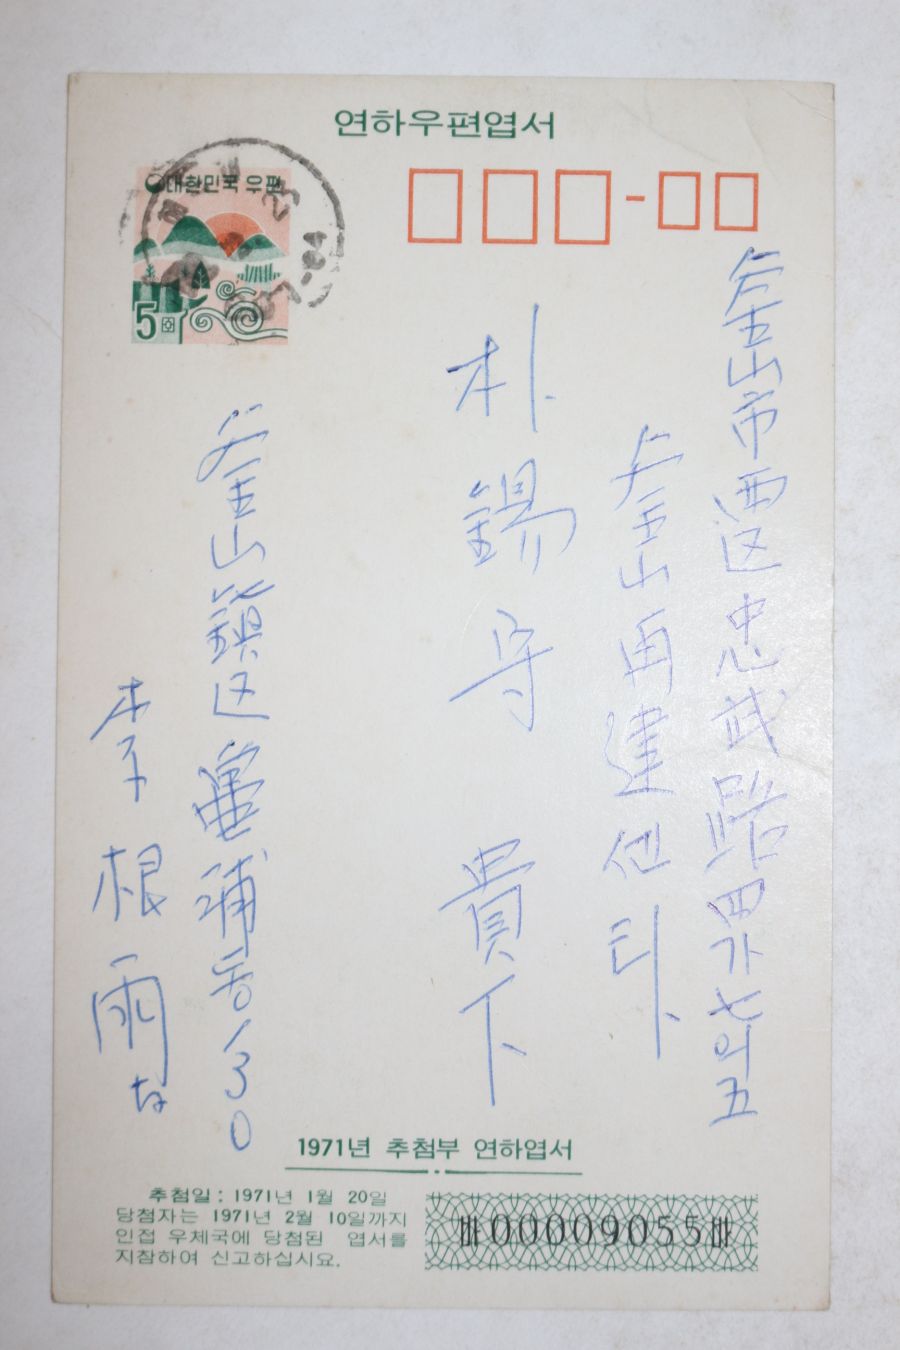 연하우편엽서
대한민국 우편
5원
釜山市西区忠武路四가七의五
釜山再建센타
朴錫守 貴下
釜山鎮区 堂浦동130
李根雨
1971년 추첨부 연하엽서
추첨일 : 1971년 1월 20일
당첨자는 1971년 2월 10일까지
인접 우체국에 당첨된 엽서를
지참하여 신고하십시요.
000009055